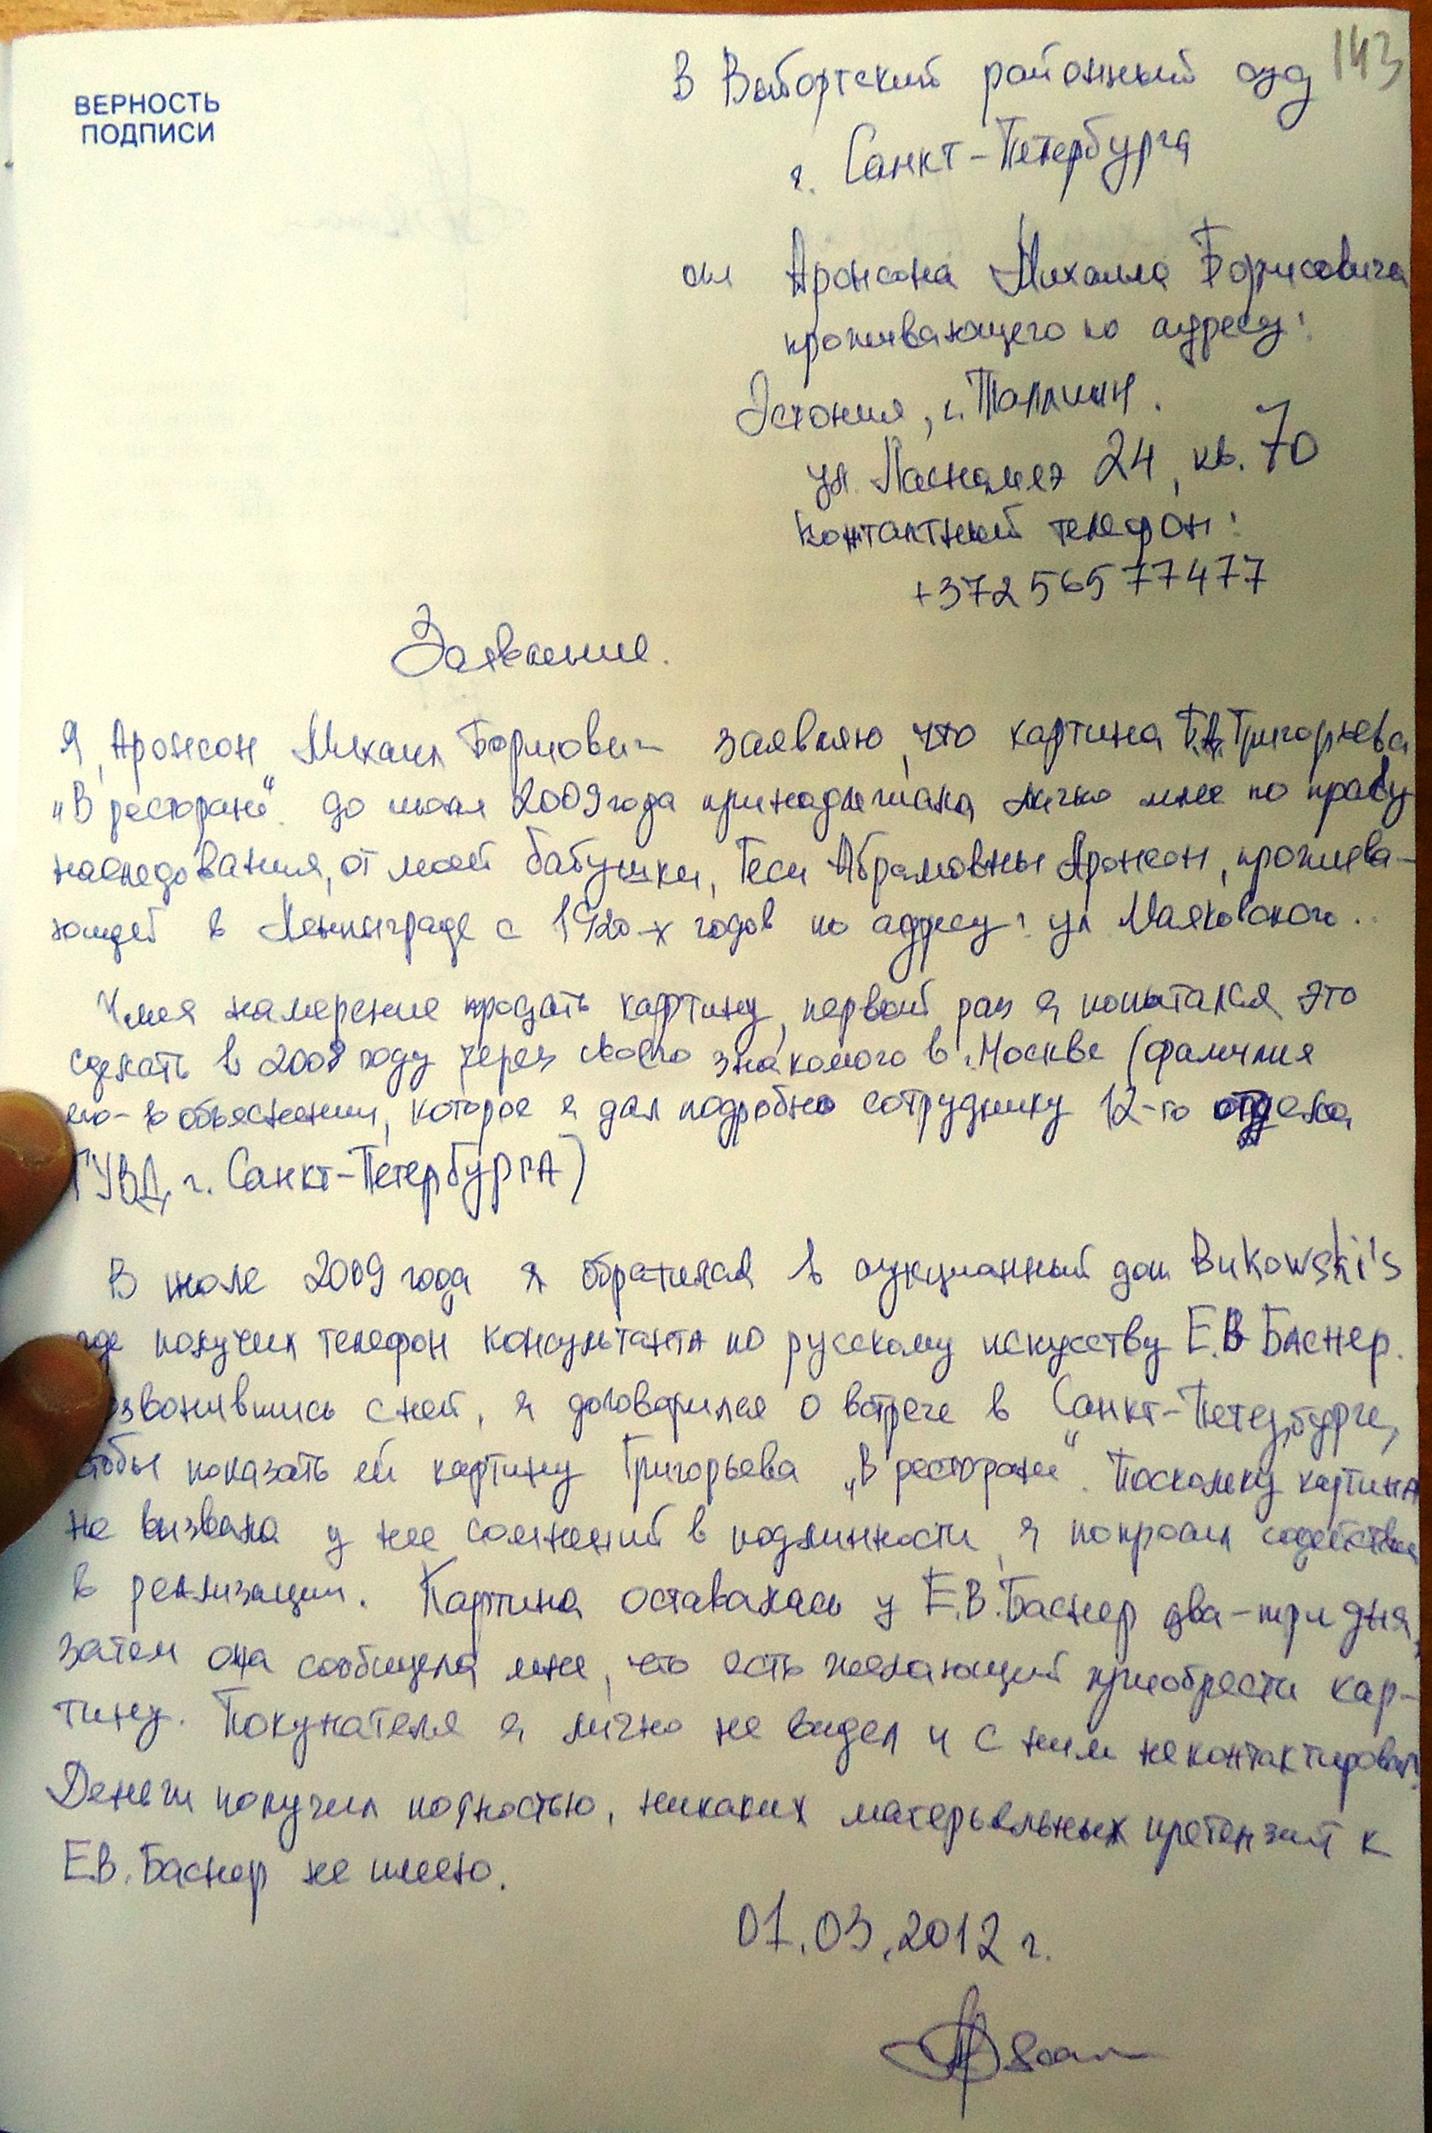 143
ВЕРНОСТЬ
ПОДПИСИ
В Выборгский районный суд
г. Санкт-Петербурга
от Аронсона Михаила Борисовича
проживающего по адресу:
Эстония, г. Таллинн.
ул. Ласнамяэ 24, кв. 70
контактный телефон:
+372 56577477
Заявление.
Я, Аронсон Михаил Борисович заявляю, что картина Б.Д. Григорьева
„В ресторане“ до июля 2009 года принадлежала лично мне по праву
наследования, от моей бабушки, Геси Абрамовны Аронсон, прожива-
ющей в Ленинграде с 1920-х годов по адресу: ул Маяковского..
Имея намерение продать картину, первый раз я попытался это
сделать в 2008 году через своего знакомого в Москве (фамилия
его - в объяснении, которое я дал подробно сотруднику 12-го отдела
ГУВД г. Санкт-Петербурга)
В июле 2009 года я обратился в аукционный дом Bukowski's
где получил телефон консультанта по русскому искусству Е.В Баснер.
озвонившись с ней, я договорился о встрече в Санкт-Петербурге,
чтобы показать ей картину Григорьева „В ресторане“. Поскольку картина
не вызвала у нее сомнений в подлинности, я попросил содействия
в реализации. Картина оставалась у Е.В. Баснер два-три дня,
затем она сообщила мне, что есть желающий приобрести кар-
тину. Покупателя я лично не видел и с ним не контактировал.
Деньги получил полностью, никаких матерьяльных претензий к
Е.В. Баснер не имею.
01.03.2012 г.